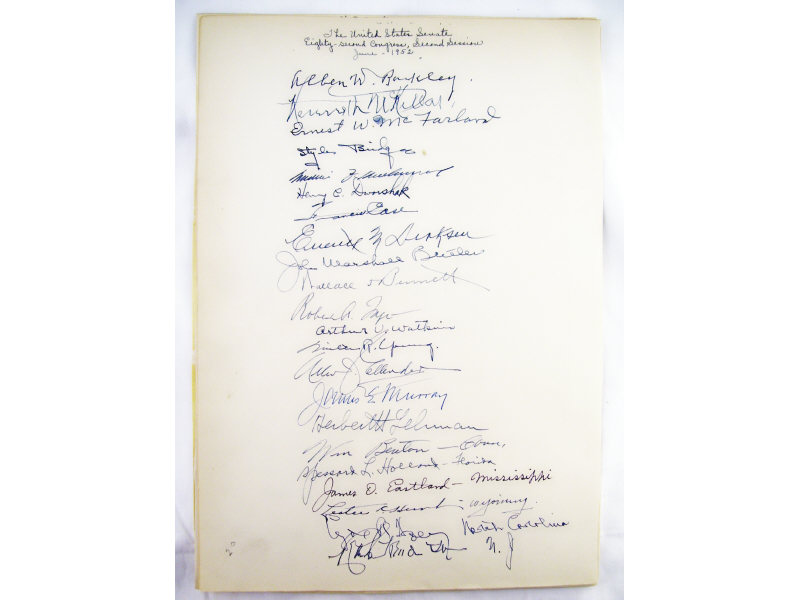 The United States Senate
Eighty-second Congress, Second Session
June - 1952
Alben W. Barkley.
Kenneth McKellar,
Ernest W. McFarland
Styles Bridges
Henry C. Dworshak
Francis Case
Everett M Dirksen
John Marshall Butler
Wallace F Bennett
Robert A. Taft
Arthur V. Watkins
Milton R. Young.
Allen J. Ellender
James E. Murray
Herbert H Lehman
Wm Benton - Conn.
Spessard L. Holland - Florida
James O. Eastland - Mississippi
Lester C Hunt - Wyoming.
Clyde R. Hoey North Carolina
N. J
20